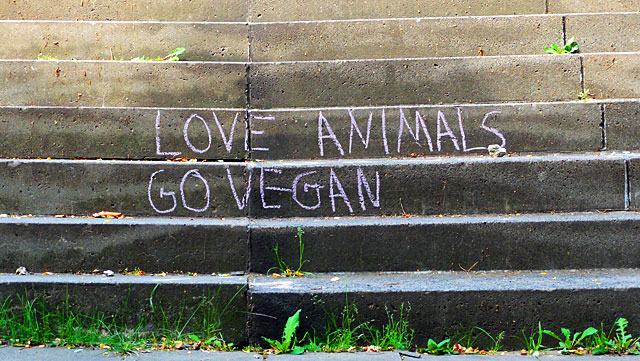 LOVE ANIMALS
GO VEGAN